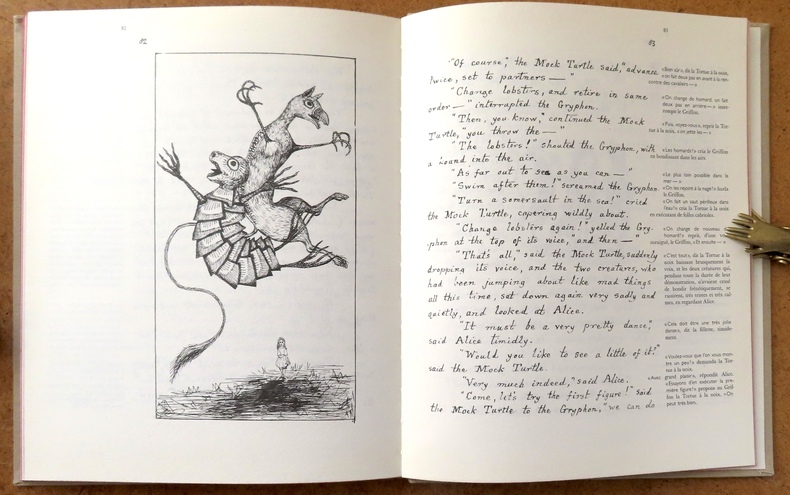 82
82
83
83
"Of course," the Mock Turtle said, "advance
twice, set to partners — "
"Change lobsters, and retire in same
order — " interrupted the Gryphon.
"Then, you know," continued the Mock
Turtle, "you throw the — "
"The lobsters!" shouted the Gryphon, with
a bound into the air.
"As far out to sea as you can — "
"Swim after them!" screamed the Gryphon.
"Turn a somersault in the sea!" cried
the Mock Turtle, capering wildly about.
"Change lobsters again!" yelled the Gry-
-phon at the top of its voice, "and then — "
"That's all," said the Mock Turtle, suddenly
dropping its voice, and the two creatures, who
had been jumping about like mad things
all this time, sat down again very sadly and
quietly, and looked at Alice.
"It must be a very pretty dance,"
said Alice timidly.
"Would you like to see a little of it?"
said the Mock Turtle.
"Very much indeed," said Alice.
"Come, let's try the first figure!" said
the Mock Turtle to the Gryphon, "we can do
«Bien sûr», dit la Tortue à la noix,
«on fait deux pas en avant à la ren-
contre des cavaliers — »
«On change de homard, on fait
deux pas en arrière — »
le Griffon.
«Puis, voyez-vous», reprit la Tor-
tue à la noix, «on jette les — »
«Les homards!» cria le Griffon
en bondissant dans les airs.
«Le plus loin possible dans la
mer — »
le Griffon.
«On fait un saut périlleux dans
l'eau!» cria la Tortue à la noix
en exécutant de folles cabrioles.
«On change de nouveau
homard!» reprit, d'une
le Griffon, «Et ensuite — »
«C'est tout», dit la Tortue à la
noix baissant brusquement la
voix, et les deux créatures qui,
pendant toute la durée de leur
démonstration, n'avaient cessé
de bondir frénétiquement, se
rassirent, très tristes et très cal-
mes, en regardant Alice.
«Cela doit être une très jolie
danse», dit la fillette, timide-
ment.
«Voulez-vous que l'on vous mon-
tre un peu?» demanda la Tor-
tue à la noix.
«Avec grand plaisir», répondit Alice.
«Essayons d'en exécuter la pre-
mière figure!» proposa au Grif-
fon la Tortue à la noix. «On
peut très bien,